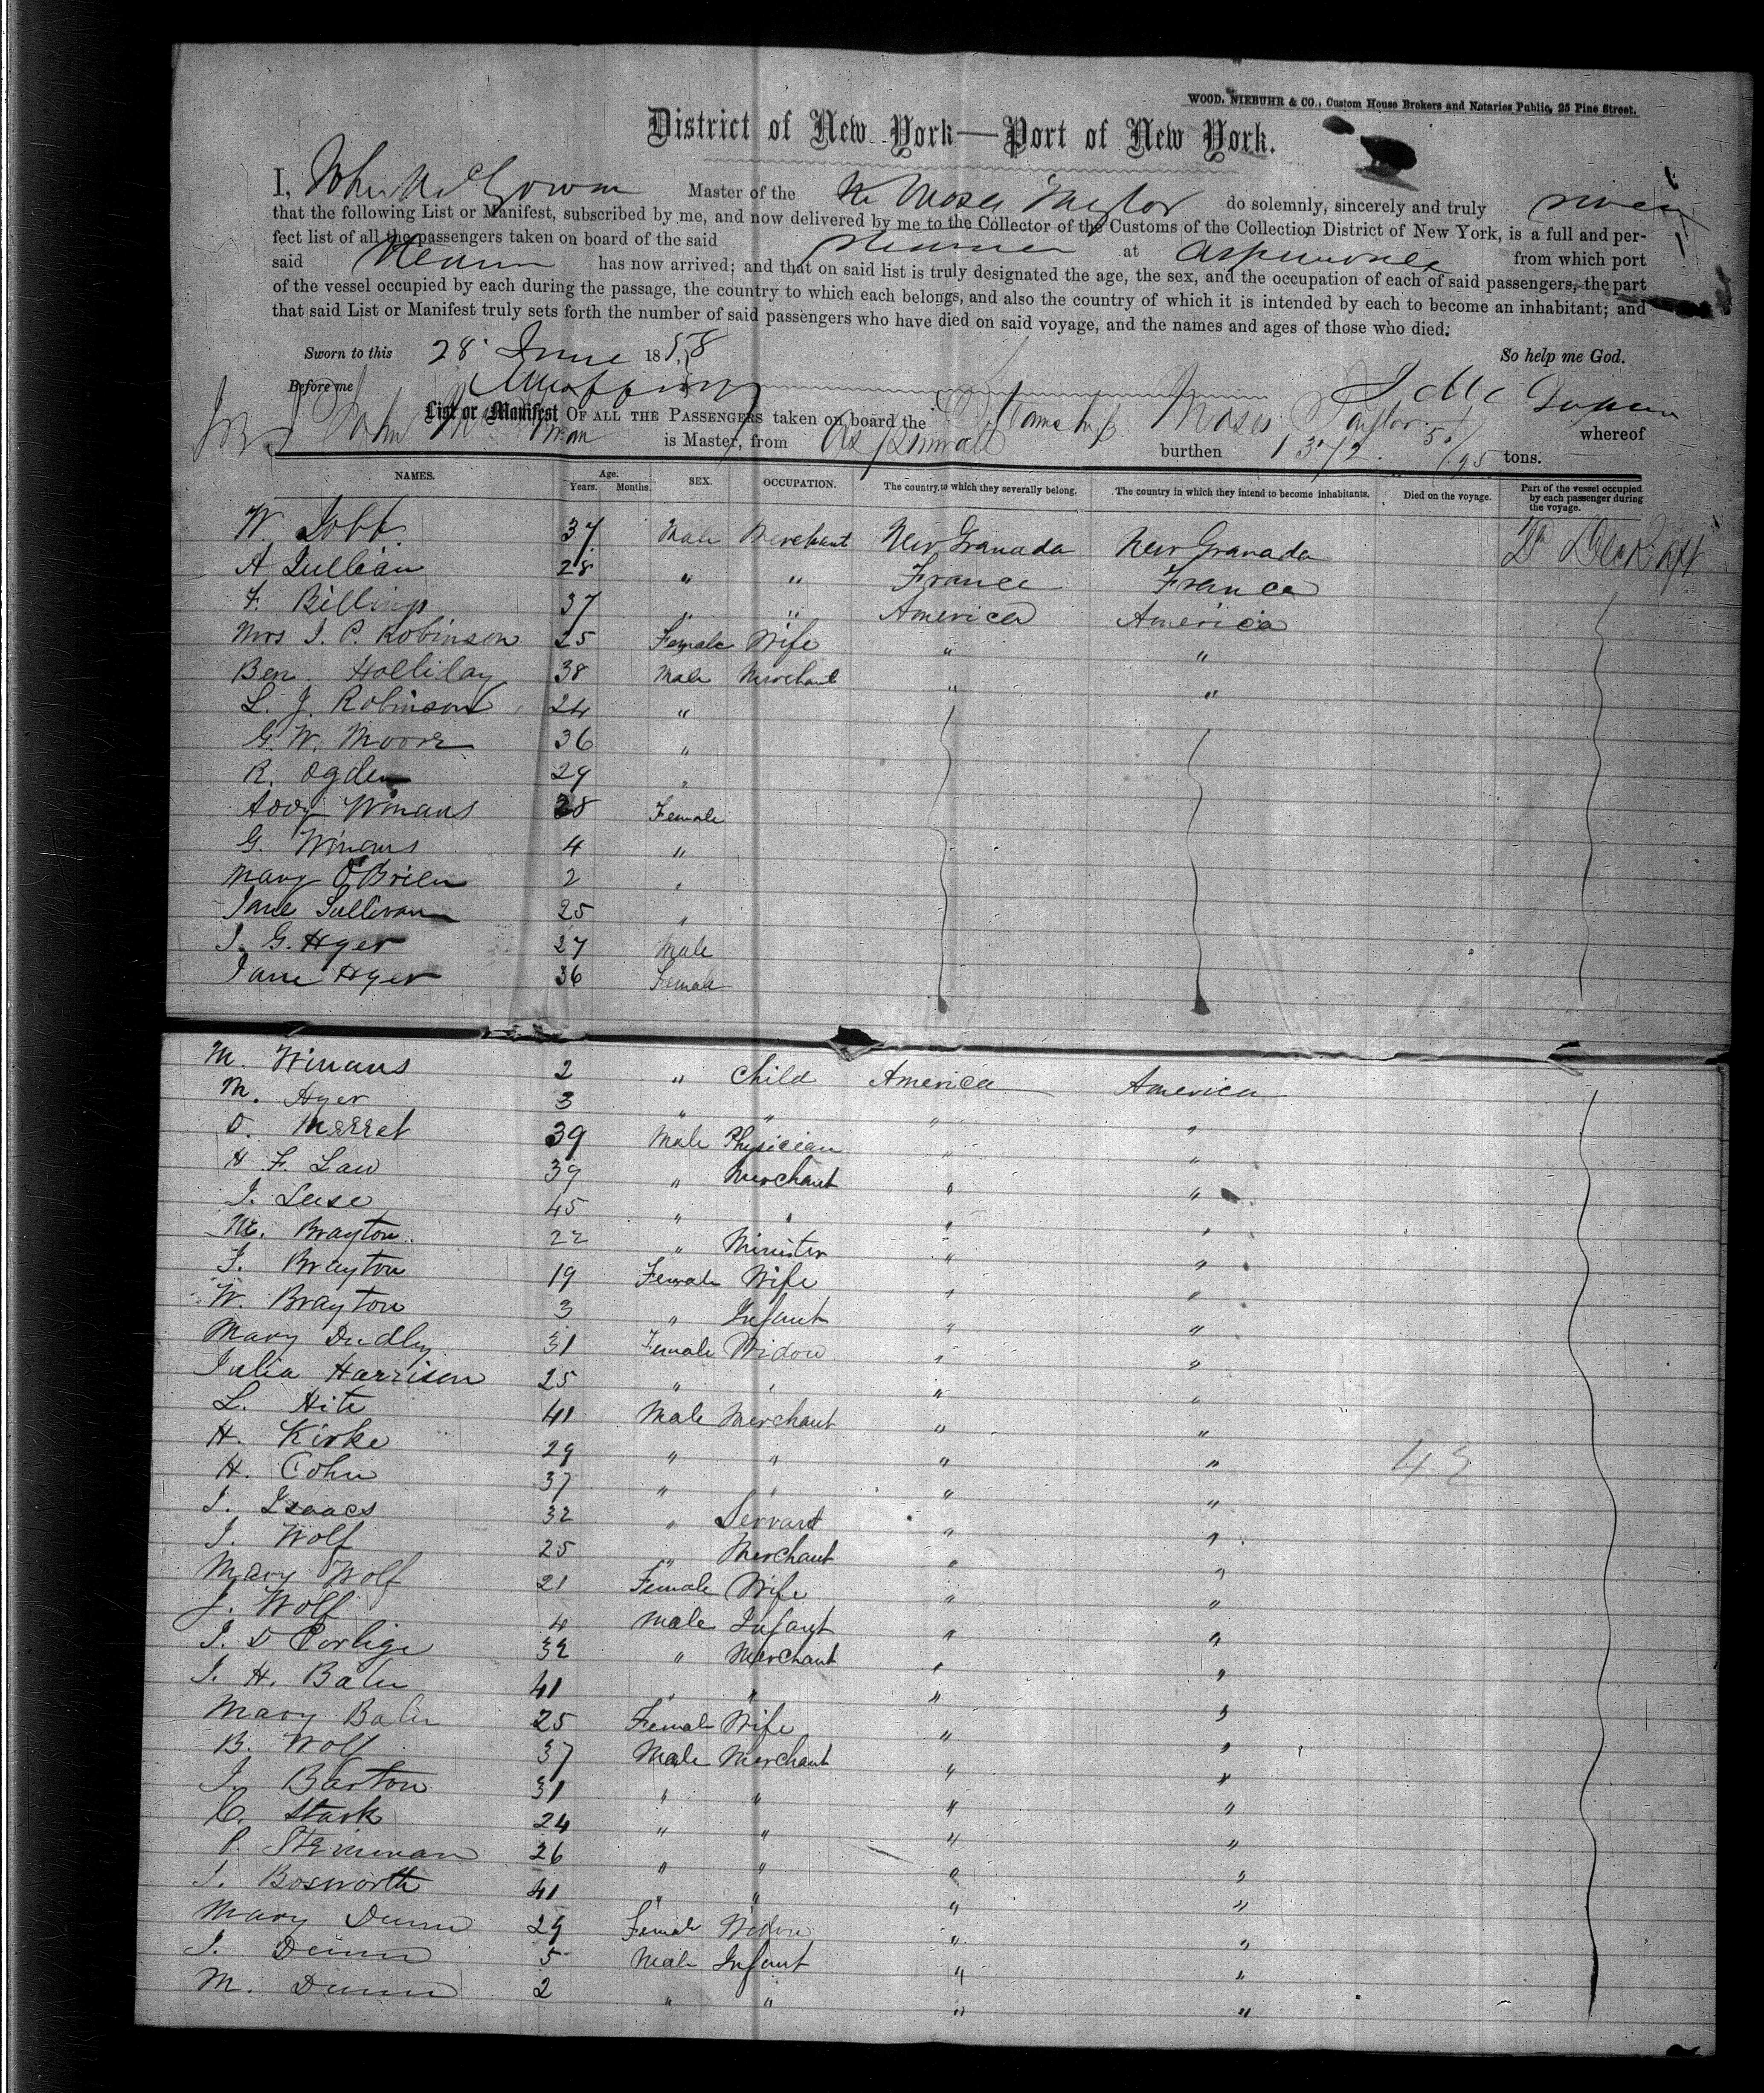 WOOD, NIEBUHR & CO., Custom House Brokers and Notaries Public, 25 Pine Street.
District of New York—Port of New York.
I, John McGowan Master of the Str Moses Taylor do solemnly, sincerely and truly swear
that the following List or Manifest, subscribed by me, and now delivered by me to the Collector of the Customs of the Collection District of New York, is a full and per-
fect list of all the passengers taken on board of the said Steamer at Aspinwall from which port
said Steamer has now arrived; and that on said list is truly designated the age, the sex, and the occupation of each of said passengers, the part
of the vessel occupied by each during the passage, the country to which each belongs, and also the country of which it is intended by each to become an inhabitant; and
that said List or Manifest truly sets forth the number of said passengers who have died on said voyage, and the names and ages of those who died.
Sworn to this 28 June 1858 So help me God.
Before me
List or Manifest OF ALL THE PASSENGERS taken on board the Steamship Moses Taylor whereof
John is Master, from Aspinwall burthen 1372 tons.
NAMES. Age. Years. Months. SEX. OCCUPATION. The country to which they severally belong. The country in which they intend to become inhabitants. Died on the voyage. Part of the vessel occupied by each passenger during the voyage.
W. 37 Male Merchant New Granada New Granada
A Jullian 28 " " France France
F. Billings 37 " " America America
Mrs J. P. Robinson 25 Female Wife " "
Ben Holliday 38 Male Merchant " "
L. J. Robinson 24 "
G. W. Moore 36 "
R. Ogden 29 "
Addy Winans 28 Female
G. Winans 4 "
Mary O'Brien 2 "
Jane Sullivan 25 "
J. G. Hyer 27 Male
Jane Hyer 36 Female
M. Winans 2 " Child America America
M. Hyer 3 " " " "
D. Merret 39 Male Physician " "
H F Law 39 " Merchant " "
J. Leese 45 " " " "
M. Brayton 22 " Minister " "
F. Brayton 19 Female Wife " "
W. Brayton 3 " Infant " "
Mary Dudley 31 Female Widow " "
Julia Harrison 25 " " " "
L. Hite 41 Male Merchant " "
H. Kirke 29 " " " "
H. Cohn 37 " " " "
J. Isaacs 32 " Servant " "
J. Wolf 25 " Merchant " "
Mary Wolf 21 Female Wife " "
J. Wolf 4 Male Infant " "
J. D 32 " Merchant " "
J. H. 41 " " " "
Mary 25 Female Wife " "
B. Wolf 37 Male Merchant " "
J. Barton 31 " " " "
C. Stark 24 " " " "
P. Steinman 26 " " " "
J. Bosworth 41 " " " "
Mary Dunn 29 Female Widow " "
J. Dunn 5 Male Infant " "
M. Dunn 2 " " " "